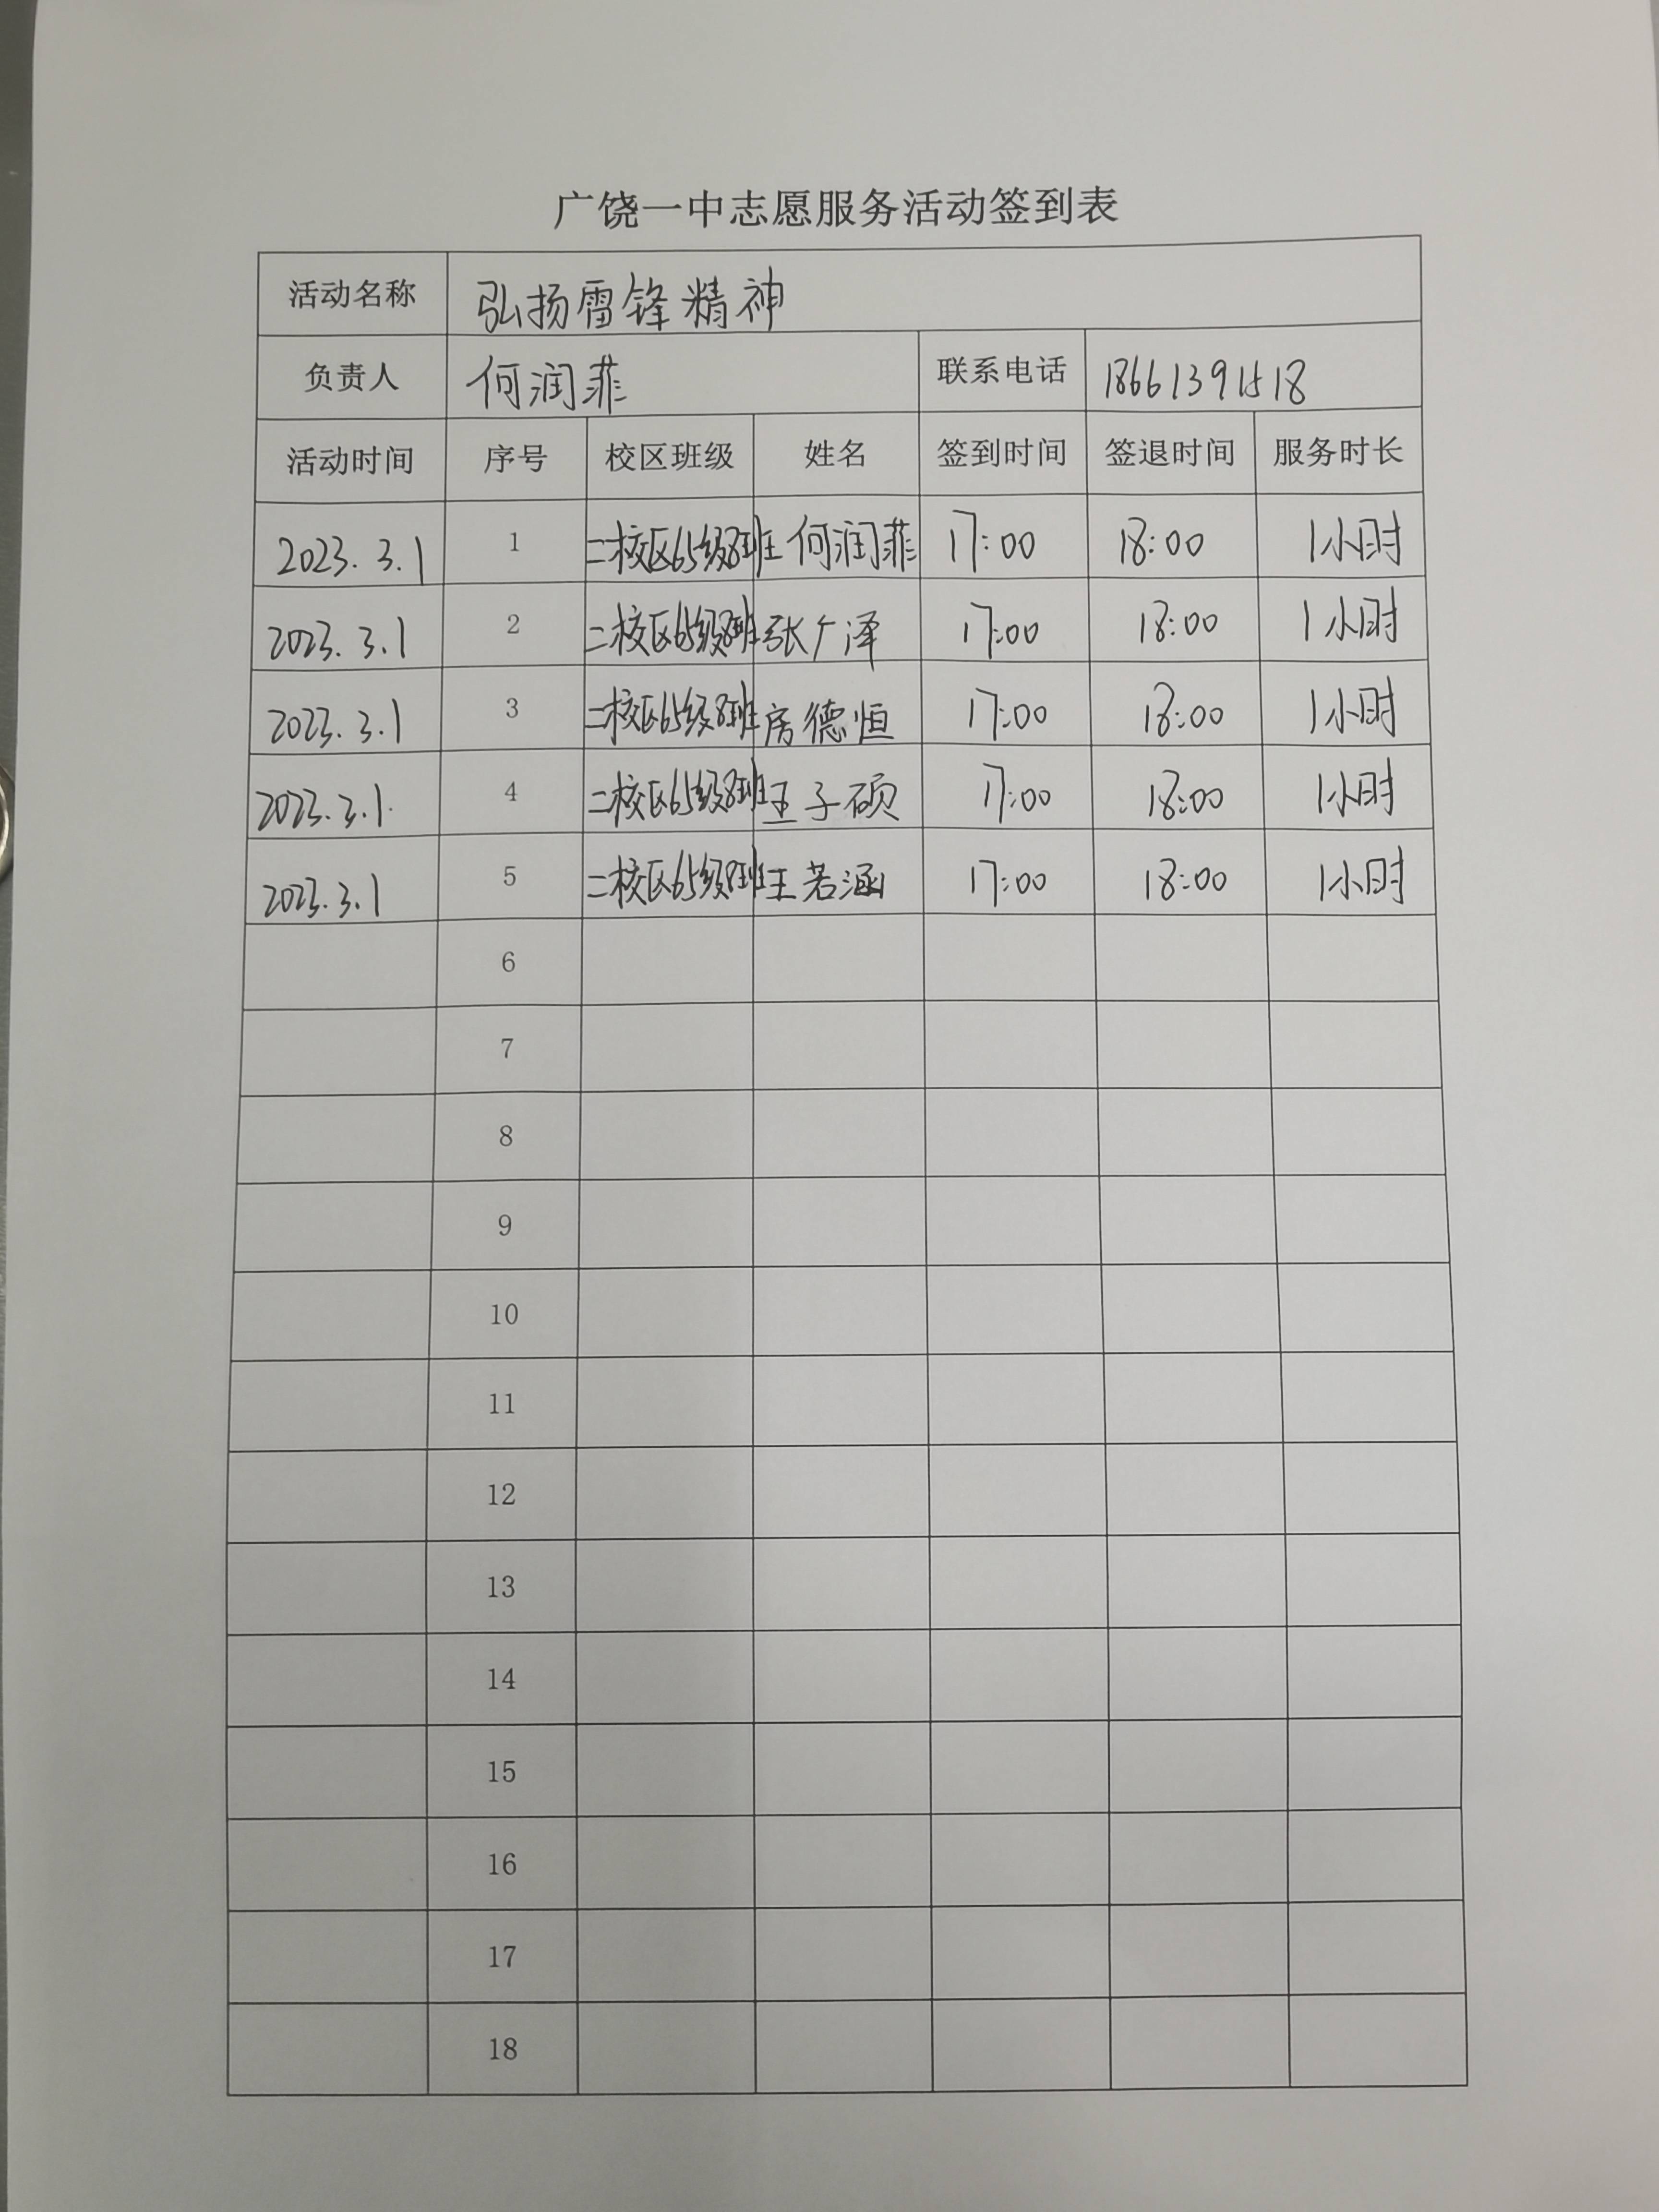 广饶一中志愿服务活动签到表
活动名称 弘扬雷锋精神
负责人 何润菲 联系电话 18661391518
活动时间 序号 校区班级 姓名 签到时间 签退时间 服务时长
2023.3.1 1 二校区65级8班 何润菲 17:00 18:00 1小时
2023.3.1 2 二校区65级8班 张广泽 17:00 18:00 1小时
2023.3.1 3 二校区65级8班 房德恒 17:00 18:00 1小时
2023.3.1 4 二校区65级8班 王子硕 17:00 18:00 1小时
2023.3.1 5 二校区65级8班 王若涵 17:00 18:00 1小时
6
7
8
9
10
11
12
13
14
15
16
17
18